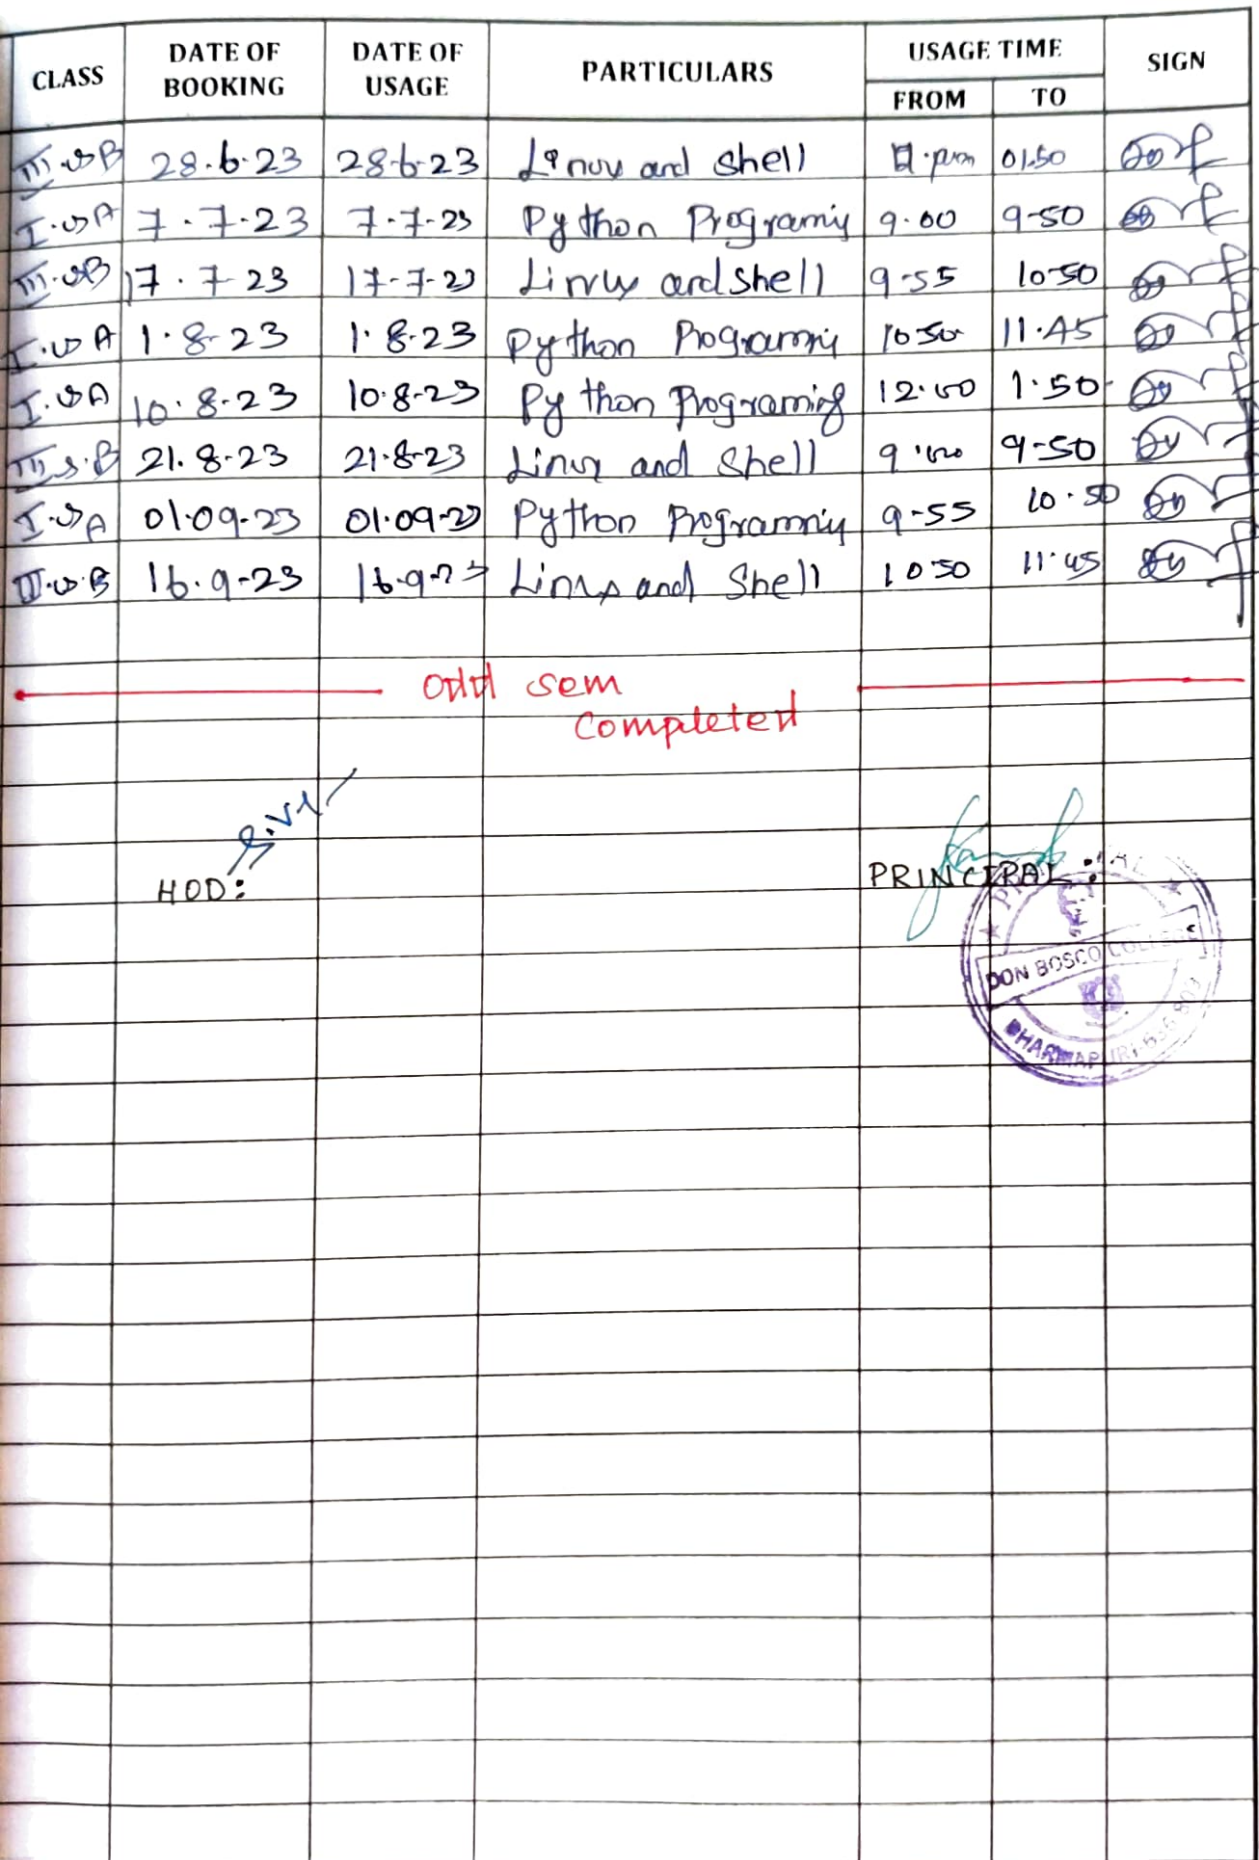 CLASS DATE OF BOOKING DATE OF USAGE PARTICULARS USAGE TIME FROM TO SIGN
III 28.6.23 28-6-23 Linux and Shell .pm 01.50
I A 7.7.23 7-7-23 Python Programing 9.00 9-50
III B 17.7.23 17-7-23 Linux and Shell 9-55 10-50
I A 1.8.23 1.8.23 Python Programing 10.50 11.45
I A 10.8.23 10.8.23 Python Programing 12.00 1.50
III B 21.8.23 21.8.23 Linux and Shell 9.00 9-50
I A 01.09.23 01.09.23 Python Programing 9-55 10.50
III B 16.9.23 16.9.23 Linux and Shell 10.50 11.45
Odd sem
Completed
HOD:
PRINCIPAL :
DON BOSCO COLLEGE
DHARMAPURI-636 803